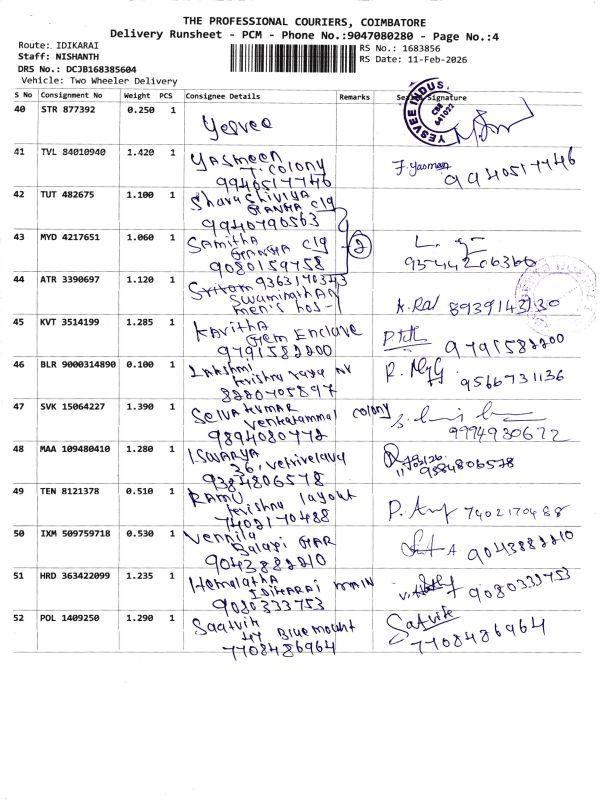 THE PROFESSIONAL COURIERS, COIMBATORE
Delivery Runsheet - PCM - Phone No.:9047080280 - Page No.:4
Route: IDIKARAI
RS No.: 1683856
Staff: NISHANTH
RS Date: 11-Feb-2026
DRS No.: DCJB168385604
Vehicle: Two Wheeler Delivery
S No Consignment No Weight PCS Consignee Details Remarks Seal & Signature
40 STR 877392 0.250 1
Yesvee
YESVEE INDUS. CBE 641022
41 TVL 84010940 1.420 1
Yasmeen
T. Colony
9940517746
F. Yasmeen
9940517746
42 TUT 482675 1.100 1
Ganga clg
9940790563
43 MYD 4217651 1.060 1
Samitha
Ganga clg
9080159758
2
9544206366
44 ATR 3390697 1.120 1
Sriram 9363170343
Swaminathan
men's hos-
A. Raj 8939143130
45 KVT 3514199 1.285 1
Kavitha
Gem Enclave
9791582200
9791582200
46 BLR 9000314890 0.100 1
Lakshmi
Krishna raya Nr
8220705897
9566731136
47 SVK 15064227 1.390 1
Selva kumar
Venkatammal colony
9894080772
9994930672
48 MAA 109480410 1.280 1
Iswarya
36, vetrivelava
9384806578
9384806578
49 TEN 8121378 0.510 1
Ramu
Krishna layout
7402170488
7402170488
50 IXM 509759718 0.530 1
Vennila
Balaji Nar
9043882210
9043882210
51 HRD 363422099 1.235 1
Hemalatha
Idikarai main
9080333753
9080333753
52 POL 1409250 1.290 1
Saatvik
47 Blue mount
7708486964
Satvik
7708486964